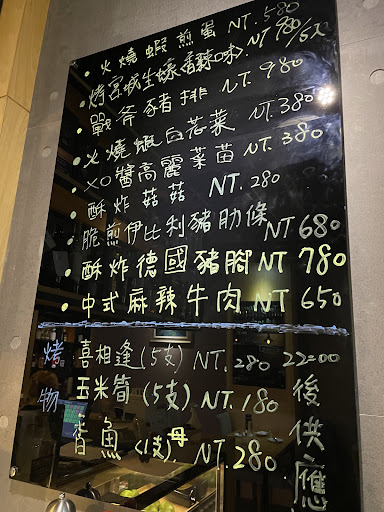 • 火燒蝦煎蛋 NT.580
• 烤宮城生蠔(香辣味) NT 980/6入
• 戰斧豬排 NT.980
• 火燒蝦白花菜 NT.380
• XO醬高麗菜苗 NT.380
• 酥炸菇菇 NT.280
• 脆煎伊比利豬肋條 NT 680
• 酥炸德國豬腳 NT 780
• 中式麻辣牛肉 NT 650
烤物
喜相逢(5支) NT.280
玉米筍(5支) NT.180
香魚(1支)母 NT.280
22:00後供應